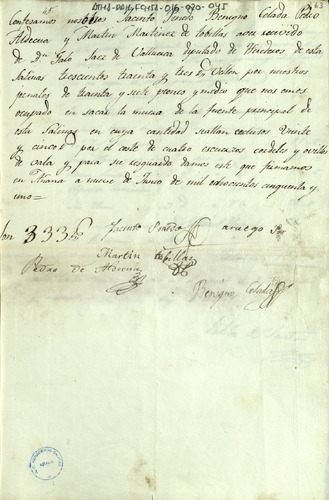 45
63
Confesamos nosotros Jacinto Pardo Benigno Celada Pedro
Aldecoa y Martin Martinez de Tobillas aver recivido
de Dn Galo Saez de Valluerca Diputado de Herederos de esta
Salinas trescientos treinta y tres rs Vellon por nuestros
jornales de treinta y siete peones y medio que nos emos
ocupado en sacar la muera de la fuente principal de
esta Salina en cuya cantidad se allan exclusos Veinte
y cinco por el coste de cuatro cordeles y
de sala y para su resguardo damos este que firmamos
en Añana a nueve de Junio de mil ochocientos cincuenta y
uno=
Son 333 rs Jacinto Pardo a ruego
Martin Tobillas
Pedro de
Benigno Celada